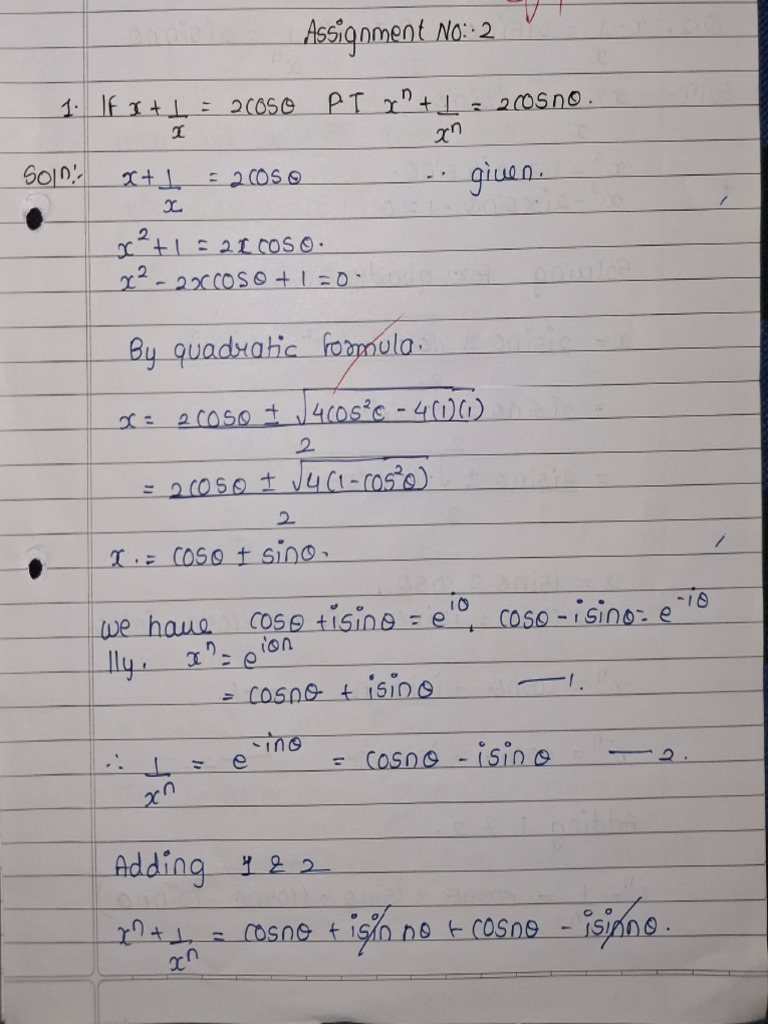 Assignment No:- 2
1. If x + 1/x = 2cosθ PT xⁿ + 1/xⁿ = 2cosnθ.
Solⁿ:- x + 1/x = 2cosθ .. given.
x² + 1 = 2x cosθ.
x² - 2xcosθ + 1 = 0.
By quadratic formula.
x = 2cosθ ± √4cos²θ - 4(1)(1) / 2
= 2cosθ ± √4(1-cos²θ) / 2
x . = cosθ ± sinθ.
we have cosθ + isinθ = e^iθ, cosθ - isinθ = e^-iθ
lly. xⁿ = e^iθn
= cosnθ + isinθ — 1.
∴ 1/xⁿ = e^-inθ = cosnθ - isinθ — 2.
Adding 1 & 2
xⁿ + 1/xⁿ = cosnθ + isin nθ + cosnθ - isinnθ.